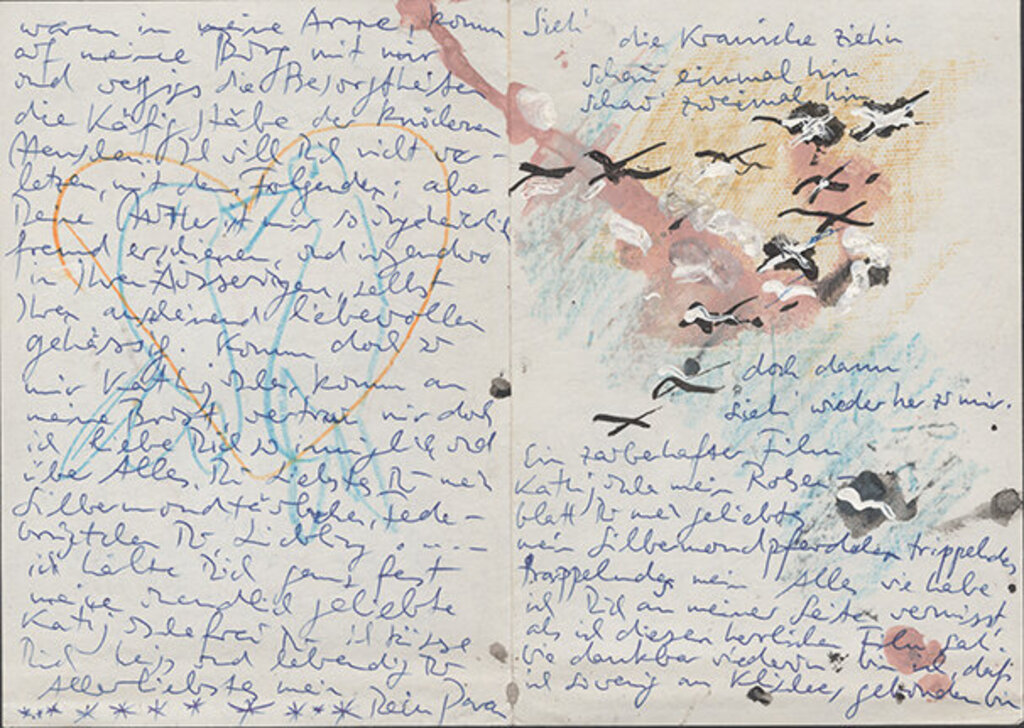 warm in meine Arme, komm
auf meine Burg mit mir
und vergiss die Besorgtheiten
die Käfigstäbe der knöchernen
Menschen. Ich will Dich nicht ver-
letzen, mit dem Folgenden; aber
Deine Mutter ist mir so ungeheuerlich
fremd erschienen, und irgendwo
in Ihren Äusserungen, selbst
Ihren anscheinend liebevollen
gehässig. Komm doch zu
mir Katinjuschlee, komm an
meine Brust vertrau mir doch
ich liebe Dich so inniglich und
über Alles, Du Liebstes Du mein
Silbermondtäubchen, Feder-
brüstchen Du, Liebling
ich halte Dich ganz fest
meine unendlich geliebte
frau Du ich küsse
Dich leis und lebendig Du
Allerliebstes mein
Dein
Sieh'
die Kraniche ziehn
schau' einmal hin
schau' zweimal hin
doch dann
sieh' wieder her zu mir.
Ein zauberhafter Film
mein Rosen-
blatt Du mein geliebtes
mein Silbermondpferdchen trippelndes
trappelndes mein Alles wie habe
ich Dich an meiner Seite vermisst
als ich diesen herrlichen Film sah.
Wie dankbar wiederum bin ich, dass
ich so wenig an gebunden bin